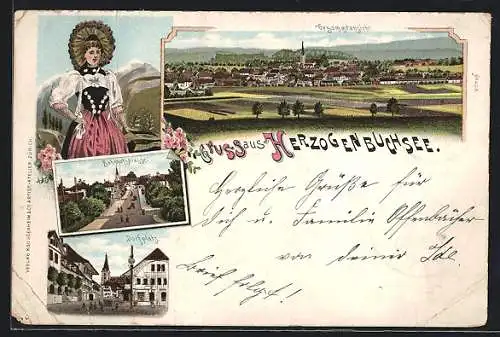 Gesamtansicht
Gruss aus Herzogenbuchsee.
Bahnhofstrasse
Dorfplatz
Herzliche Grüße für
Dich u. Familie Offenbächer
von deiner Ida.
Brief folgt!